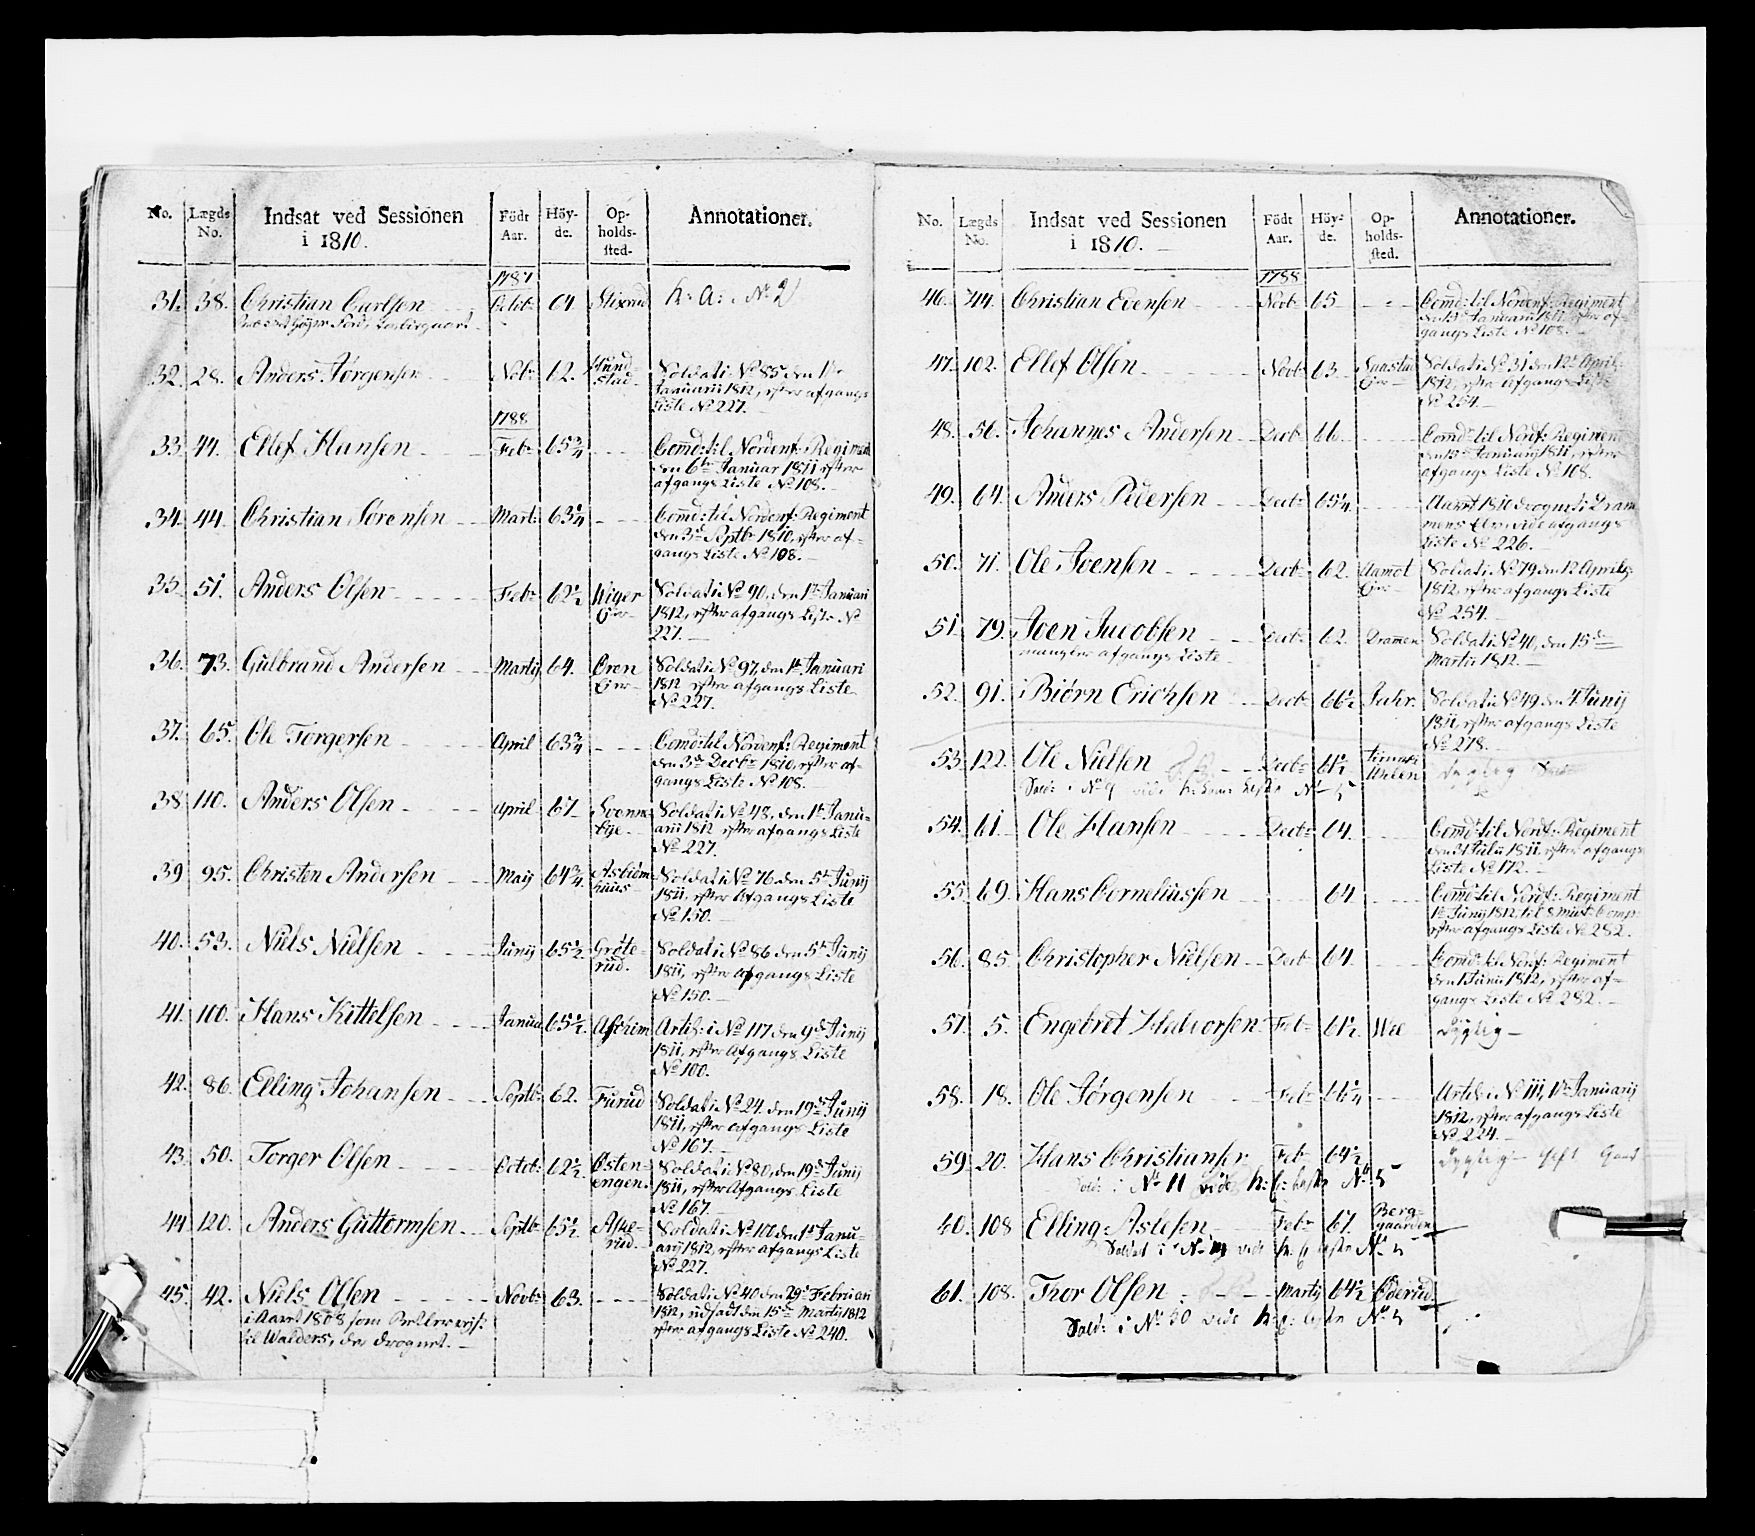 No. Lægds No. Indsat ved Sessionen i 1810. Födt Aar. Höy-de. Op-holds-sted. Annotationer.
1787
31. 38. Christian Carlsen Octob: 64 Stixrud h: a: No 2
32. 28. Anders Jørgensen Nob: 62. Hund-stad Soldat i No 85 den 1te
Januarii 1812, efter afgangs
Liste No 227.
1788
33. 44. Ellef Hansen Feb: 65 3/4 Comd: til Nordenf: Regiment
den 6te Januar 1811 efter
afgangs Liste No 108.
34. 44. Christian Sørensen Mart: 63 1/4 Comd: til Nordenf: Regiment
den 3de Septbr 1810, efter af-
gangs Liste No 108.
35. 51. Anders Olsen Feb: 62 1/2 Wiger Eier Soldat i No 90, den 1te Januari
1812, efter afgangs Liste No
227.
36. 73. Gulbrand Andersen Martij 64. Øren Eier Soldat i No 97, den 1te Januari
1812 efter afgangs Liste
No 227.
37. 65. Ole Torgersen April 63 3/4 Comd: til Nordenf: Regiment
den 3de Decbr 1810, efter af-
gangs Liste No 108.
38. 110. Anders Olsen April 67 Soldat i No 48, den 1te Janu-
arii 1812 efter afgangs Liste
No 227.
39 95. Christen Andersen Maij 64 3/4 Soldat i No 76 den 5te Junij
1811, efter Afgangs Liste
No 150.
40. 53. Niels Nielsen Junij 65 1/2 Gröte-rud. Soldat i No 86 den 5te Junij
1811, efter Afgangs Liste
No 150.
41. 100. Hans Kittelsen Janua 65 1/2 Askim Artil: i No 117 den 9de Junij
1811, efter Afgangs Liste
No 100.
42. 86. Elling Johansen Septb: 62. Furud Soldat i No 24, den 19de Junij
1811, efter Afgangs Liste
No 167.
43. 50. Torger Olsen Octob: 62 1/2 Østen-engen. Soldat i No 80, den 19de Junij
1811, efter Afgangs Liste
No 167.
44. 120. Anders Guttormsen Septb: 65 1/2 Aske-rud. Soldat i No 10 den 1te Janu-
arij 1812, efter afgangs Liste
No 227.
45. 42. Niels Olsen Novb: 63. Soldat i No 40 den 29de Februari
i Aaret 1808 som 1812, udsadt den 15de Martij 1812
til Walders, der drognet. efter afgangs Liste No 240.
No. Lægds No. Indsat ved Sessionen i 1810. Födt Aar. Höy-de. Op-holds-sted. Annotationer.
1788
46. 44. Christian Evensen Novb: 65 Comd: til Nordenf: Regiment
den 13de Januarii 1811 efter af-
gangs Liste No 108.
47. 102. Ellef Olsen Novb: 63 Eier Soldat i No 31 den 12te April
1812, efter Afgangs Liste
No 254.
48. 56. Johannes Andersen Decb: 66 Comd: til Nordf: Regiment
den 13de Januarij 1811, efter
afgangs Liste No 108.
49. 64. Anders Pedersen Decb: 65 1/4 Aaret 1810 drognet i Dram-
mens Elv, vide afgangs
Liste No 226.
50. 71. Ole Joensen Decb: 62 Aamot Eier Soldat i No 79 den 12 Aprily
1812, efter afgangs Liste
No 254.
51. 79. Joen Jacobsen Decb: 62. Dramen Soldat i No 40, den 15de
mangler afgangs Liste Martii 1812.
52. 91. Biörn Erichsen Decb: 66 1/2 Jahr. Soldat i No 49 den 4 Junij
1811, efter afgangs Liste
No 278.
53. 122. Ole Nielsen Decb: 61 1/2 dygtig
Sold: i No 9 vide
54. 61. Ole Hansen Decb: 64. Comd: til Nordf: Regiment
den 31 Julii 1811 efter afgangs
Liste No 172.
55. 69. Hans Corneliussen 64 Comd: til Nordf: Regiment
1te Junij 1812 til 8 Must: Comp:
efter afgangs Liste No 282.
56. 85. Christopher Nielsen Decb: 64. Comd: til Nordf: Regiment
den 1 Junii 1812, efter af-
gangs Liste No 282.
57. 5. Engebret Halvorsen Feb: 61 1/2 dygtig
58. 18. Ole Jörgensen Feb: 66 1/4 Artil: i No 111, 1te Januarij
1812, efter afgangs Liste
No 224.
59. 20. Hans Christiansen Feb: 64 1/2 dygtig
Sold: i No 11 vide h: f: liste No 5
60. 108 Elling Astesen Feb: 67. Berg-gaarden
Soldat i No vide h. f. liste No 5
61. 108. Thor Olsen Martij 64 1/2 Öderud
Sold: i No 30 vide h: f: liste No 5